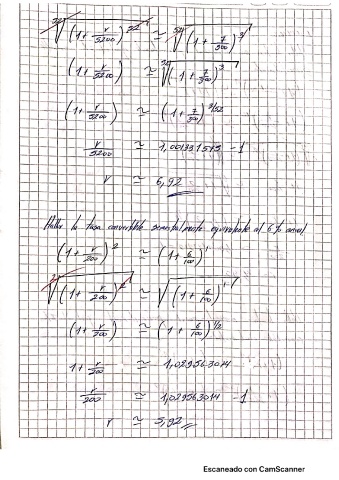 ⁵²√(1 + r/5200)⁵² ≃ ⁵²√(1 + 7/300)³
(1 + r/5200) ≃ ⁵²√(1 + 7/300)³
(1 + r/5200) ≃ (1 + 7/300)^3/52
r/5200 ≃ 1,001331575 - 1
r ≃ 6,92
Hallar la tasa convertible semestralmente equivalente al 6% anual
(1 + r/200)² ≃ (1 + 6/100)¹
²√(1 + r/200)² ≃ √(1 + 6/100)¹
(1 + r/200) ≃ (1 + 6/100)^1/2
1 + r/200 ≃ 1,029563014
r/200 ≃ 1,029563014 - 1
r ≃ 5,92
Escaneado con CamScanner